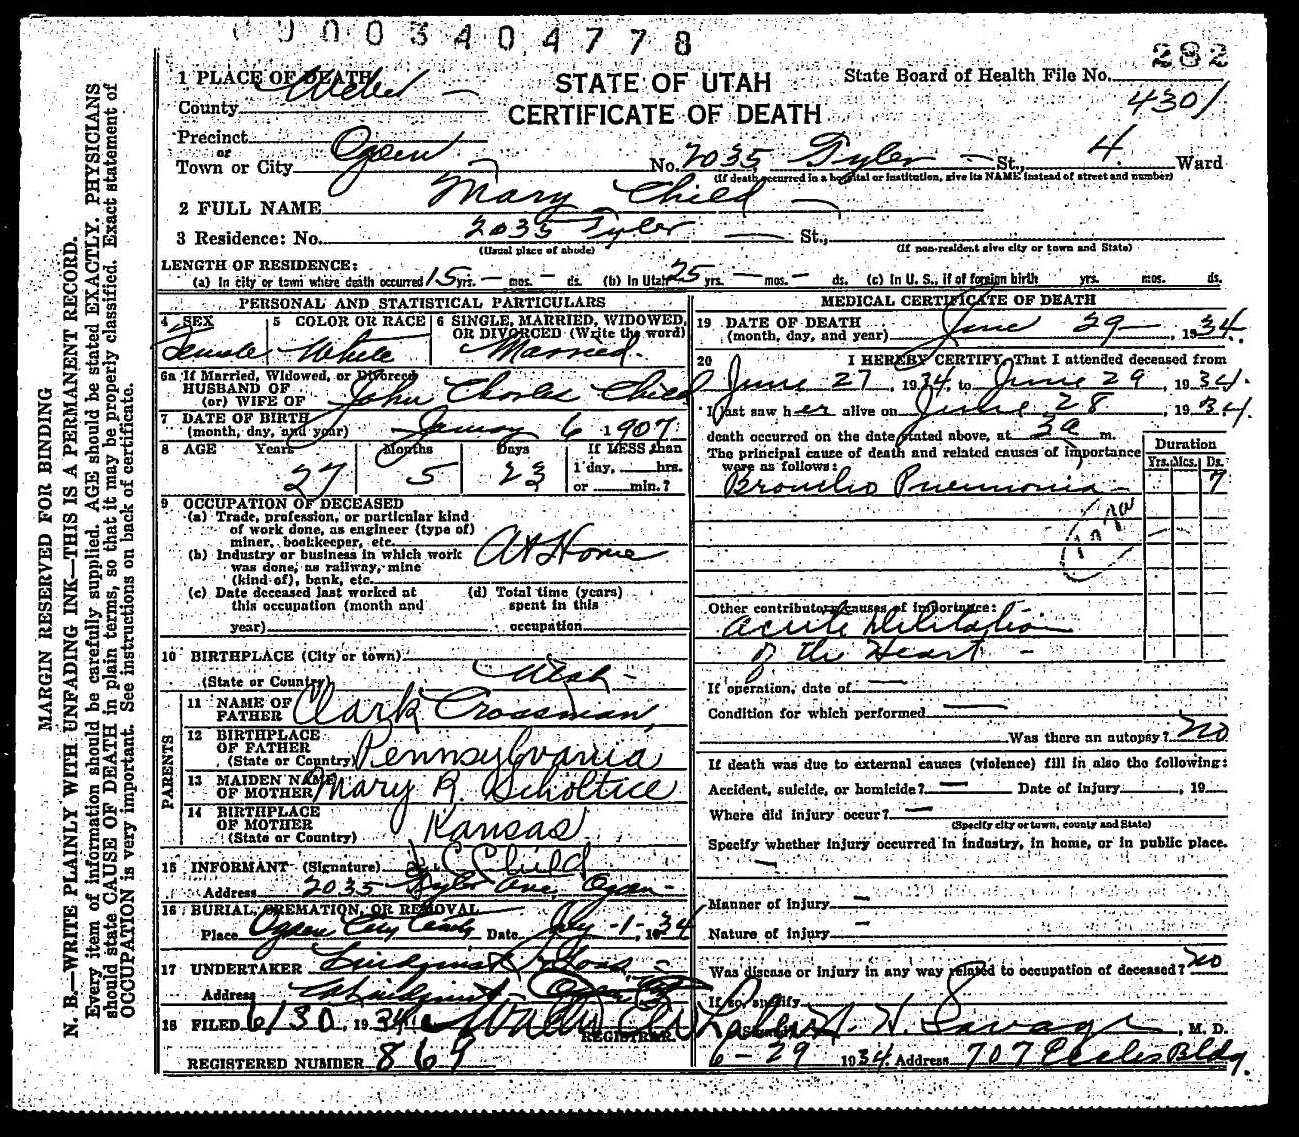 0003404778
282
1 PLACE OF DEATH
County Weber
STATE OF UTAH
CERTIFICATE OF DEATH
State Board of Health File No.
4301
Precinct
or
Town or City Ogden No. 2035 Tyler St., 4. Ward
(If death occurred in a hospital or institution, give its NAME instead of street and number)
2 FULL NAME Mary Child
3 Residence: No. 2035 Tyler St.,
(Usual place of abode) (If non-resident give city or town and State)
LENGTH OF RESIDENCE:
(a) In city or town where death occurred 15 yrs. — mos. — ds. (b) In Utah 25 yrs. — mos. — ds. (c) In U. S., if of foreign birth yrs. mos. ds.
PERSONAL AND STATISTICAL PARTICULARS
4 SEX 5 COLOR OR RACE 6 SINGLE, MARRIED, WIDOWED,
OR DIVORCED (Write the word)
Female White Married.
6a If Married, Widowed, or Divorced
HUSBAND OF
(or) WIFE OF John Charles Child
7 DATE OF BIRTH
(month, day, and year) January 6 1907
8 AGE Years Months Days If LESS than
1 day, hrs.
or min.?
27 5 23
9 OCCUPATION OF DECEASED
(a) Trade, profession, or particular kind
of work done, as engineer (type of)
miner, bookkeeper, etc.
At Home
(b) Industry or business in which work
was done, as railway, mine
(kind of), bank, etc.
(c) Date deceased last worked at
this occupation (month and
year)
(d) Total time (years)
spent in this
occupation
10 BIRTHPLACE (City or town)
(State or Country) Utah
PARENTS
11 NAME OF
FATHER Clark Crossman
12 BIRTHPLACE
OF FATHER
(State or Country) Pennsylvania
13 MAIDEN NAME
OF MOTHER Mary R. Scholtice
14 BIRTHPLACE
OF MOTHER
(State or Country) Kansas
15 INFORMANT (Signature) J C Child
Address 2035 Tyler Ave, Ogden
16 BURIAL, CREMATION, OR REMOVAL
Place Ogden City Date July -1-, 1934
17 UNDERTAKER
Address
18 FILED 6/30, 1934
REGISTRAR.
REGISTERED NUMBER 869
MEDICAL CERTIFICATE OF DEATH
19 DATE OF DEATH
(month, day, and year) June 29 — , 1934.
20 I HEREBY CERTIFY, That I attended deceased from
June 27, 1934, to June 29, 1934.
I last saw her alive on June 28, 1934.
death occurred on the date stated above, at 3 a m.
The principal cause of death and related causes of importance
were as follows:
Duration
Yrs. Mcs. Ds.
Broncho Pneumonia — 7
Other contributory causes of importance:
Acute Dilitation
of the Heart —
If operation, date of —
Condition for which performed —
Was there an autopsy? No
If death was due to external causes (violence) fill in also the following:
Accident, suicide, or homicide? — Date of injury , 19
Where did injury occur? —
(Specify city or town, county and State)
Specify whether injury occurred in industry, in home, or in public place.
—
Manner of injury —
Nature of injury —
Was disease or injury in any way related to occupation of deceased? No
If so, specify
H. H. Savage , M. D.
6-29 1934. Address 707 Eccles Bldg.
MARGIN RESERVED FOR BINDING
N. B.—WRITE PLAINLY WITH UNFADING INK—THIS IS A PERMANENT RECORD.
Every item of information should be carefully supplied. AGE should be stated EXACTLY. PHYSICIANS
should state CAUSE OF DEATH in plain terms, so that it may be properly classified. Exact statement of
OCCUPATION is very important. See instructions on back of certificate.